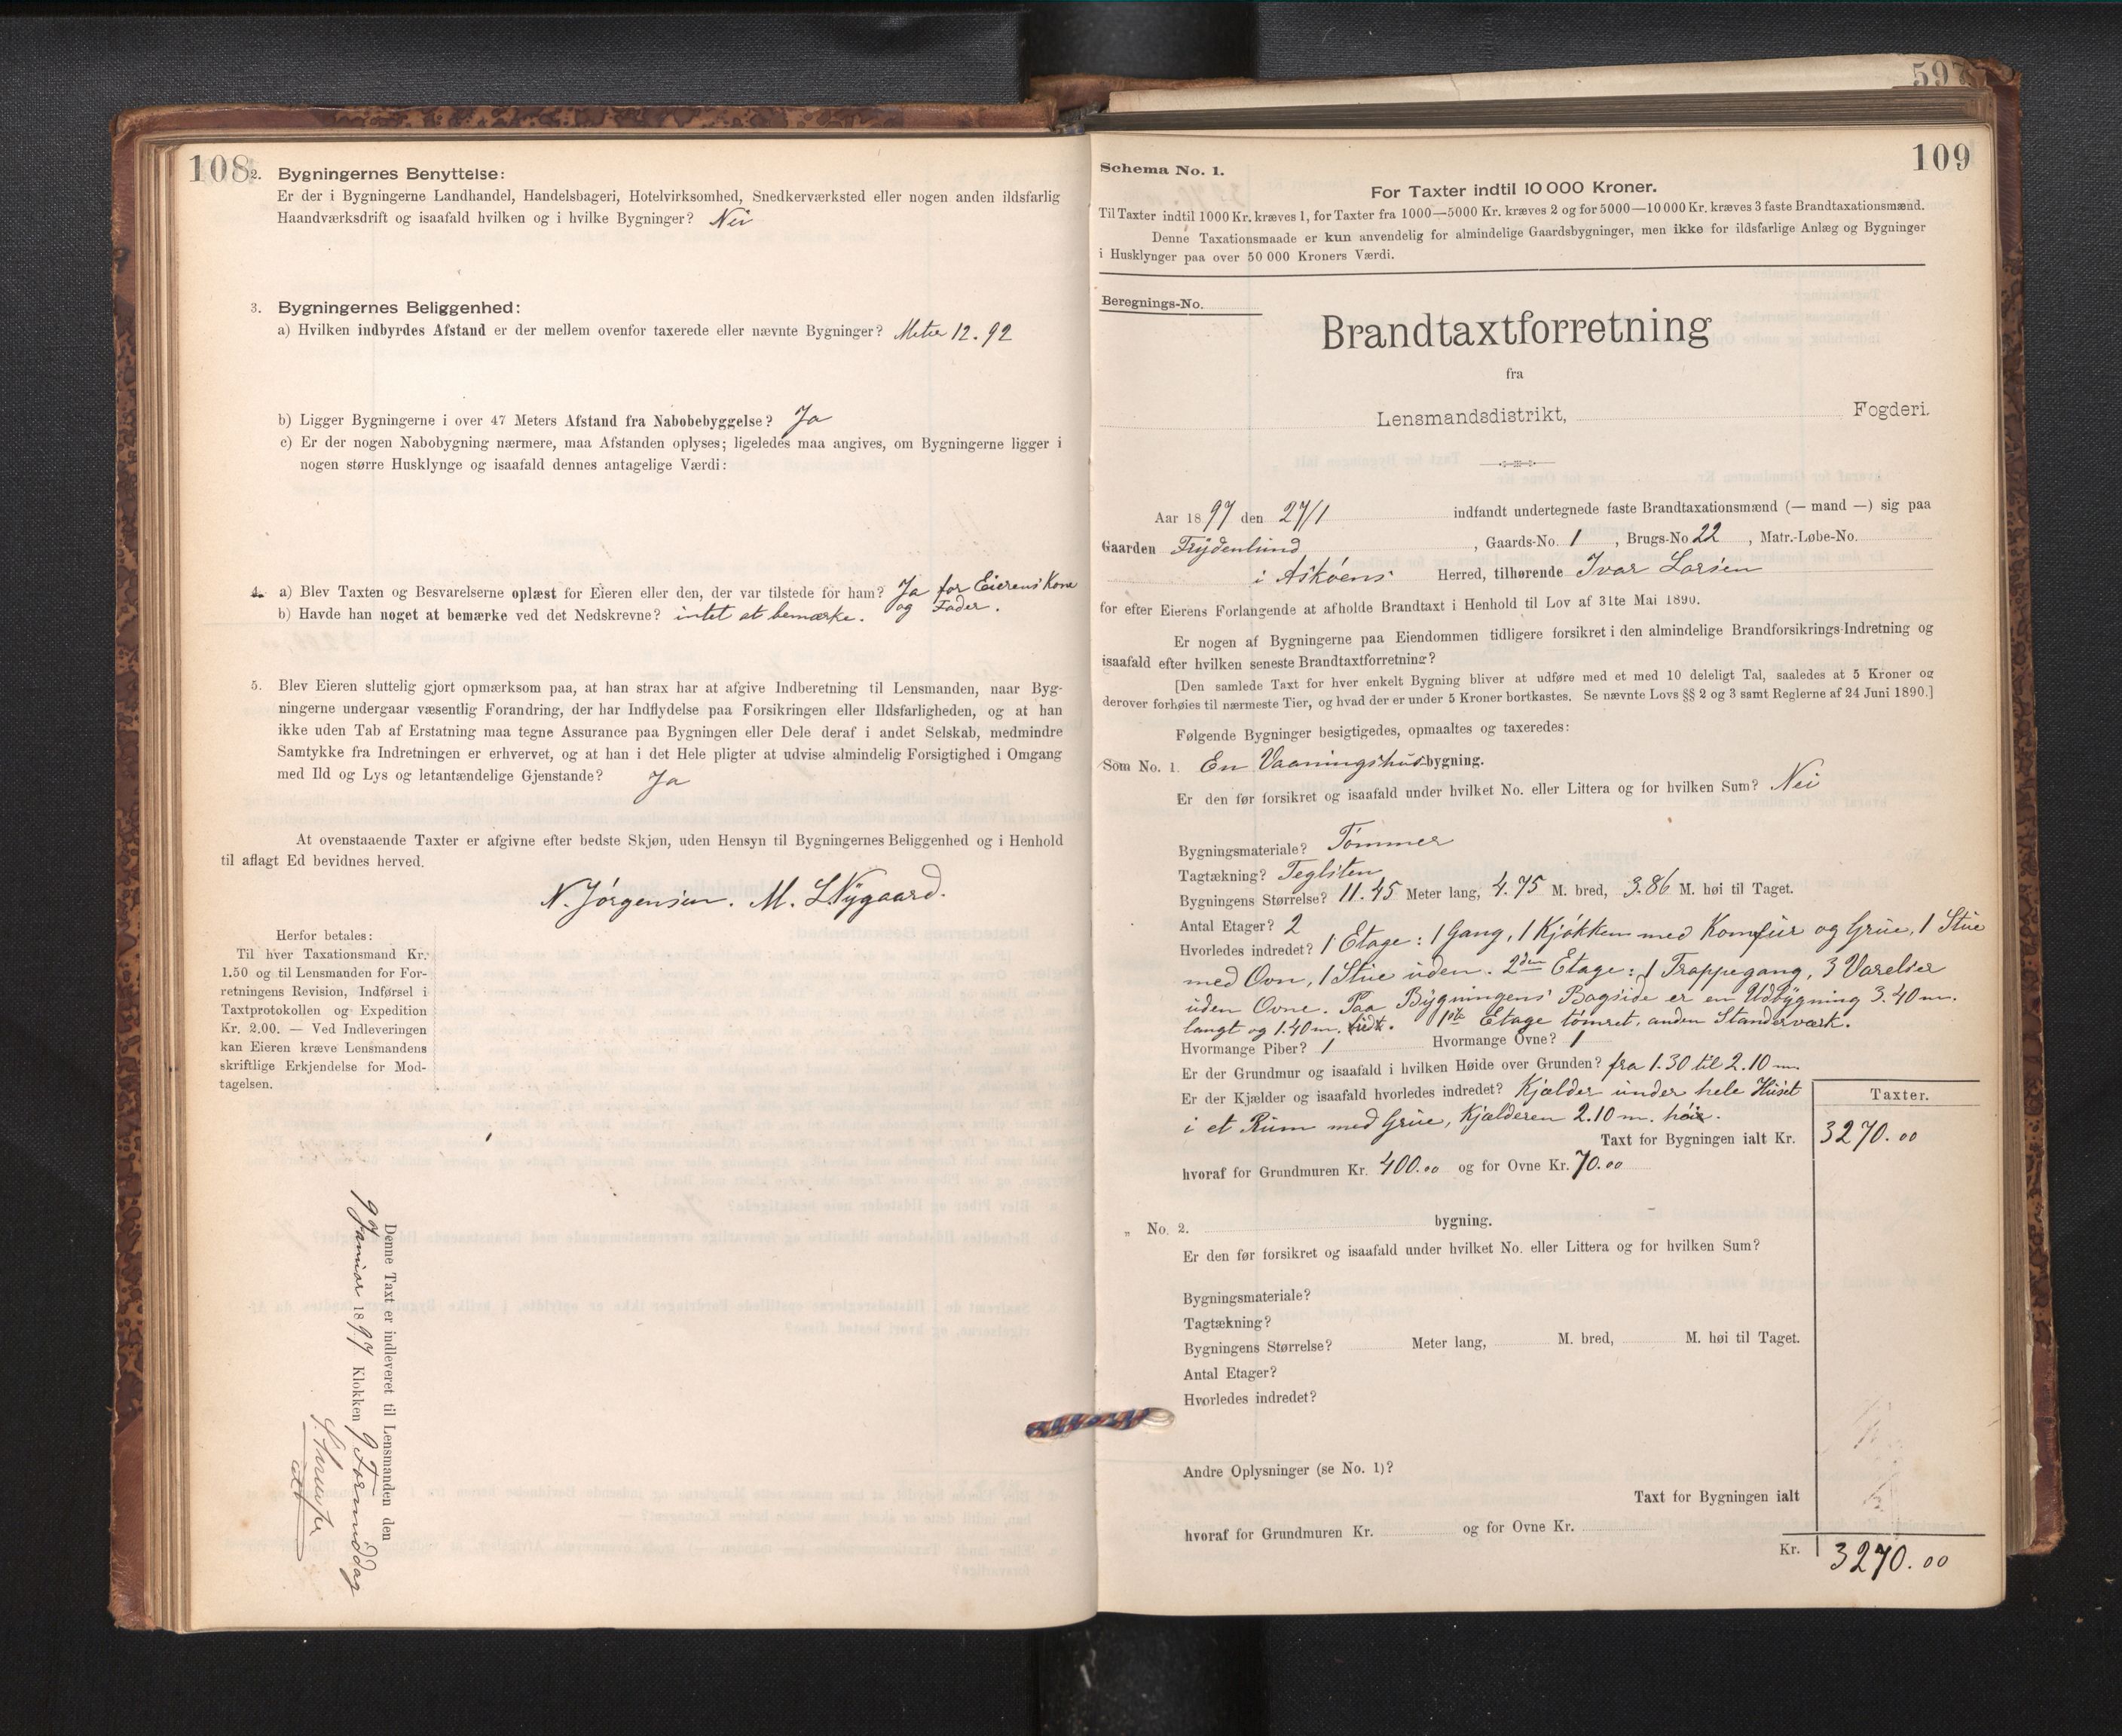 108
2. Bygningernes Benyttelse:
Er der i Bygningerne Landhandel, Handelsbageri, Hotelvirksomhed, Snedkerværksted eller nogen anden ildsfarlig
Haandværksdrift og isaafald hvilken og i hvilke Bygninger? Nei
3. Bygningernes Beliggenhed:
a) Hvilken indbyrdes Afstand er der mellem ovenfor taxerede eller nævnte Bygninger? Meter 12.92
b) Ligger Bygningerne i over 47 Meters Afstand fra Nabobebyggelse? Ja
c) Er der nogen Nabobygning nærmere, maa Afstanden oplyses; ligeledes maa angives, om Bygningerne ligger i
nogen større Husklynge og isaafald dennes antagelige Værdi:
4. a) Blev Taxten og Besvarelserne oplæst for Eieren eller den, der var tilstede for ham? Ja for Eierens Kone
og Fader.
b) Havde han noget at bemærke ved det Nedskrevne? intet at bemærke.
5. Blev Eieren sluttelig gjort opmærksom paa, at han strax har at afgive Indberetning til Lensmanden, naar Byg-
ningerne undergaar væsentlig Forandring, der har Indflydelse paa Forsikringen eller Ildsfarligheden, og at han
ikke uden Tab af Erstatning maa tegne Assurance paa Bygningen eller Dele deraf i andet Selskab, medmindre
Samtykke fra Indretningen er erhvervet, og at han i det Hele pligter at udvise almindelig Forsigtighed i Omgang
med Ild og Lys og letantændelige Gjenstande? Ja
At ovenstaaende Taxter er afgivne efter bedste Skjøn, uden Hensyn til Bygningernes Beliggenhed og i Henhold
til aflagt Ed bevidnes herved.
N. Jørgensen. M. L Nygaard.
Herfor betales:
Til hver Taxationsmand Kr.
1.50 og til Lensmanden for For-
retningens Revision, Indførsel i
Taxtprotokollen og Expedition
Kr. 2.00. — Ved Indleveringen
kan Eieren kræve Lensmandens
skriftlige Erkjendelse for Mod-
tagelsen.
Denne Taxt er indleveret til Lensmanden den
9 Januar 1897 Klokken 9 Formiddag
597
109
Schema No. 1.
For Taxter indtil 10 000 Kroner.
Til Taxter indtil 1000 Kr. kræves 1, for Taxter fra 1000—5000 Kr. kræves 2 og for 5000—10 000 Kr. kræves 3 faste Brandtaxationsmænd.
Denne Taxationsmaade er kun anvendelig for almindelige Gaardsbygninger, men ikke for ildsfarlige Anlæg og Bygninger
i Husklynger paa over 50 000 Kroners Værdi.
Beregnings-No.
Brandtaxtforretning
fra
Lensmandsdistrikt, Fogderi.
Aar 1897 den 27/1 indfandt undertegnede faste Brandtaxationsmænd (— mand —) sig paa
Gaarden Frydenlund, Gaards-No. 1, Brugs-No 22, Matr.-Løbe-No.
i Askøens Herred, tilhørende Ivar Larsen
for efter Eierens Forlangende at afholde Brandtaxt i Henhold til Lov af 31te Mai 1890.
Er nogen af Bygningerne paa Eiendommen tidligere forsikret i den almindelige Brandforsikrings-Indretning og
isaafald efter hvilken seneste Brandtaxtforretning?
[Den samlede Taxt for hver enkelt Bygning bliver at udføre med et med 10 deleligt Tal, saaledes at 5 Kroner og
derover forhøies til nærmeste Tier, og hvad der er under 5 Kroner bortkastes. Se nævnte Lovs §§ 2 og 3 samt Reglerne af 24 Juni 1890.]
Følgende Bygninger besigtigedes, opmaaltes og taxeredes:
Som No. 1. En Vaaningshusbygning.
Er den før forsikret og isaafald under hvilket No. eller Littera og for hvilken Sum? Nei
Bygningsmateriale? Tømmer
Tagtækning? Teglsten
Bygningens Størrelse? 11.45 Meter lang, 4.75 M. bred, 3.86 M. høi til Taget.
Antal Etager? 2
Hvorledes indredet? 1 Etage: 1 Gang, 1 Kjøkken med Komfur og Grue, 1 Stue
med Ovn, 1 Stue uden. 2den Etage: 1 Trappegang, 3 Varelser
uden Ovne. Paa Bygningens Bagside er en Udbygning 3.40 m.
langt og 1.40 m. bredt. 1ste Etage tømret, anden Standerværk.
Hvormange Piber? 1 Hvormange Ovne? 1
Er der Grundmur og isaafald i hvilken Høide over Grunden? fra 1.30 til 2.10 m.
Er der Kjælder og isaafald hvorledes indredet? Kjælder under hele Huset
i et Rum med Grue, Kjælderen 2.10 m. høi.
Taxter.
Taxt for Bygningen ialt Kr. 3270.00
hvoraf for Grundmuren Kr. 400.00 og for Ovne Kr. 70.00
„ No. 2. bygning.
Er den før forsikret og isaafald under hvilket No. eller Littera og for hvilken Sum?
Bygningsmateriale?
Tagtækning?
Bygningens Størrelse? Meter lang, M. bred, M. høi til Taget.
Antal Etager?
Hvorledes indredet?
Andre Oplysninger (se No. 1)?
Taxt for Bygningen ialt
hvoraf for Grundmuren Kr. og for Ovne Kr.
Kr. 3270.00